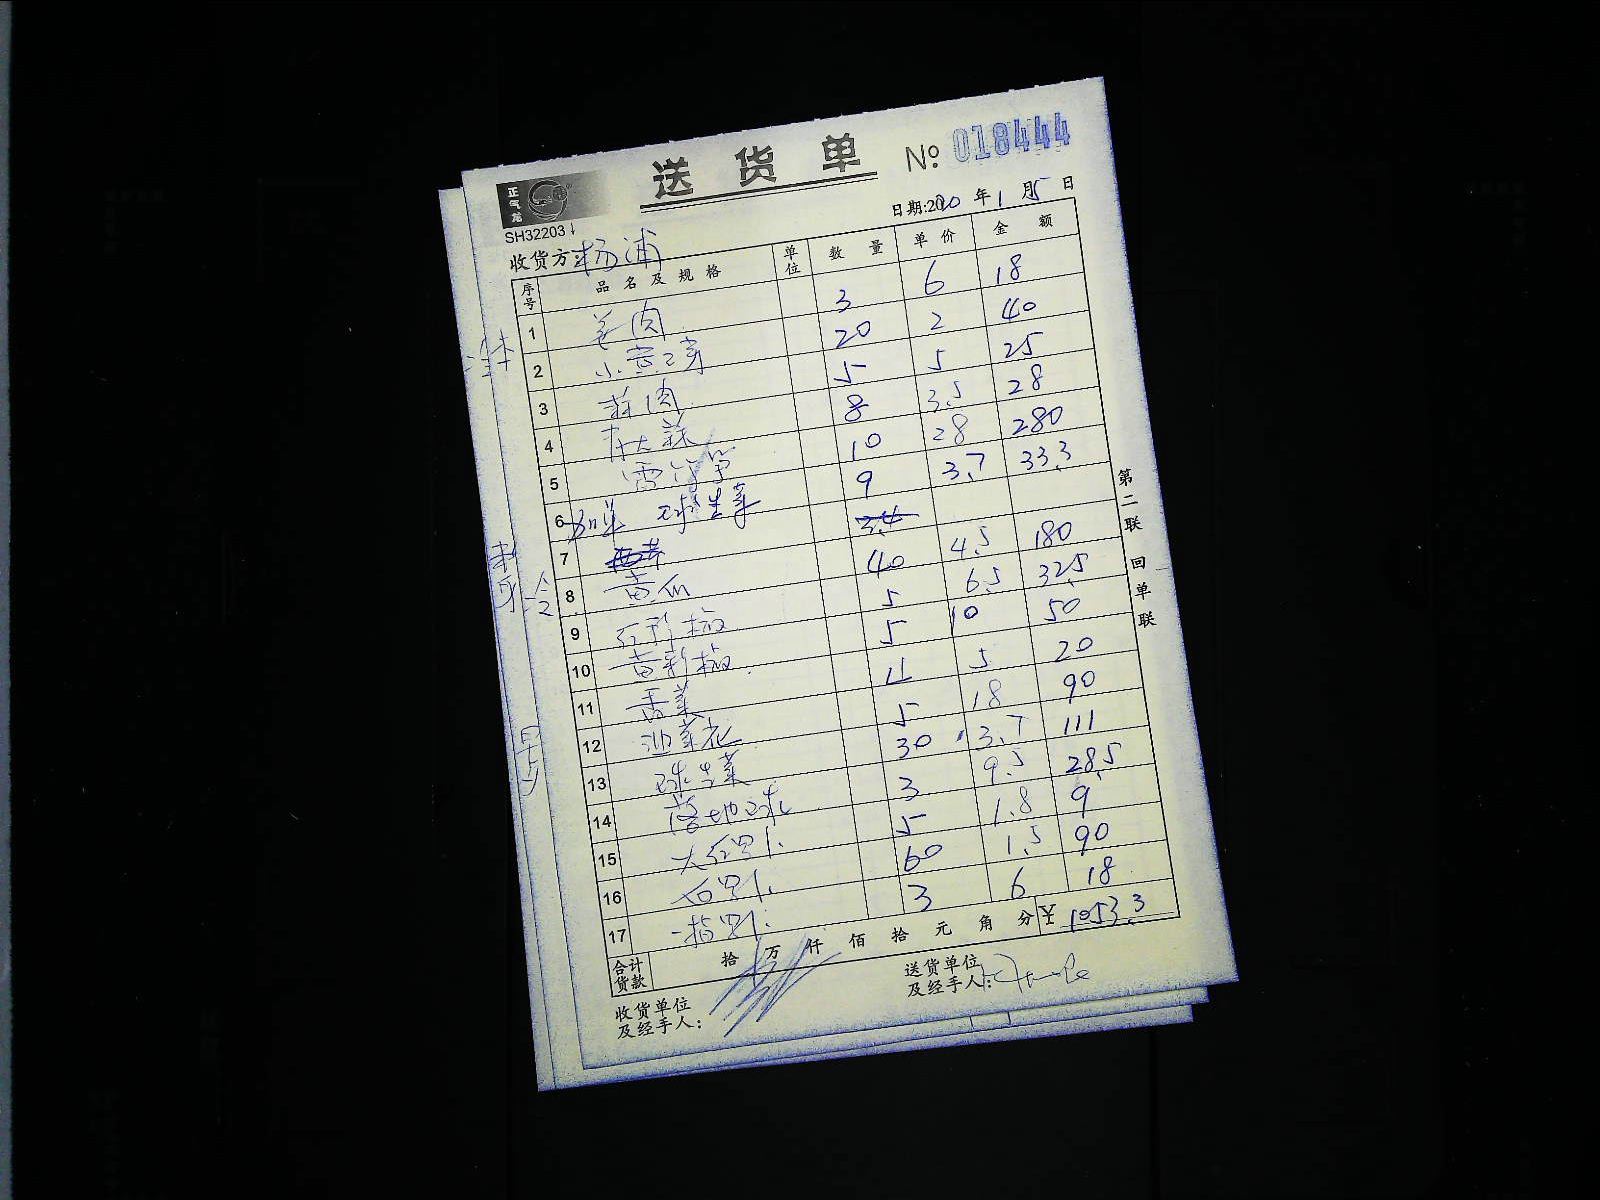 送货单 № 018444
正气龙
SH32203
日期:2020 年 1 月 5 日
收货方: 杨浦
序号 品名及规格 单位 数量 单价 金额
1 姜肉 3 6 18
2 小黄芽 20 2 40
3 蒜肉 5 5 25
4 大蒜 8 3.5 28
5 雷笋 10 28 280
6 球生菜 9 3.7 33.3
7
8 黄瓜 40 4.5 180
9 红彩椒 5 6.5 32.5
10 黄彩椒 5 10 50
11 香菜 4 5 20
12 油菜花 5 18 90
13 球生菜 30 3.7 111
14 3 9.5 28.5
15 大红 5 1.8 9
16 60 1.5 90
17 3 6 18
合计货款 拾 万 仟 佰 拾 元 角 分 ¥ 1053.3
收货单位及经手人:
送货单位及经手人:
第二联 回单联